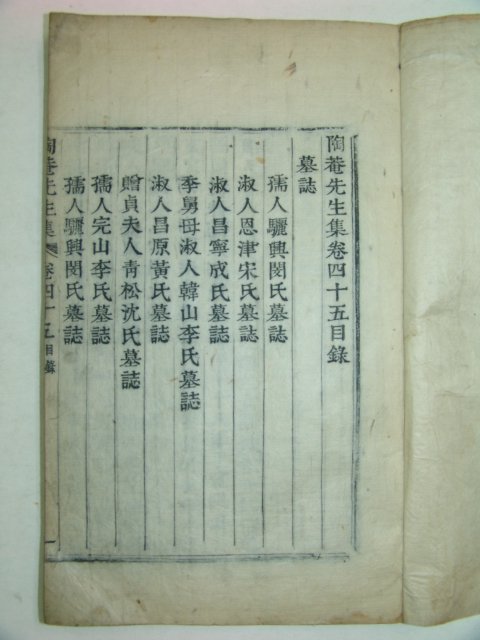 陶菴先生集卷四十五目錄
墓誌
孺人驪興閔氏墓誌
淑人恩津宋氏墓誌
淑人昌寧成氏墓誌
季舅母淑人韓山李氏墓誌
淑人昌原黃氏墓誌
贈貞夫人靑松沈氏墓誌
孺人完山李氏墓誌
孺人驪興閔氏墓誌
陶菴先生集 卷四十五 目錄 一